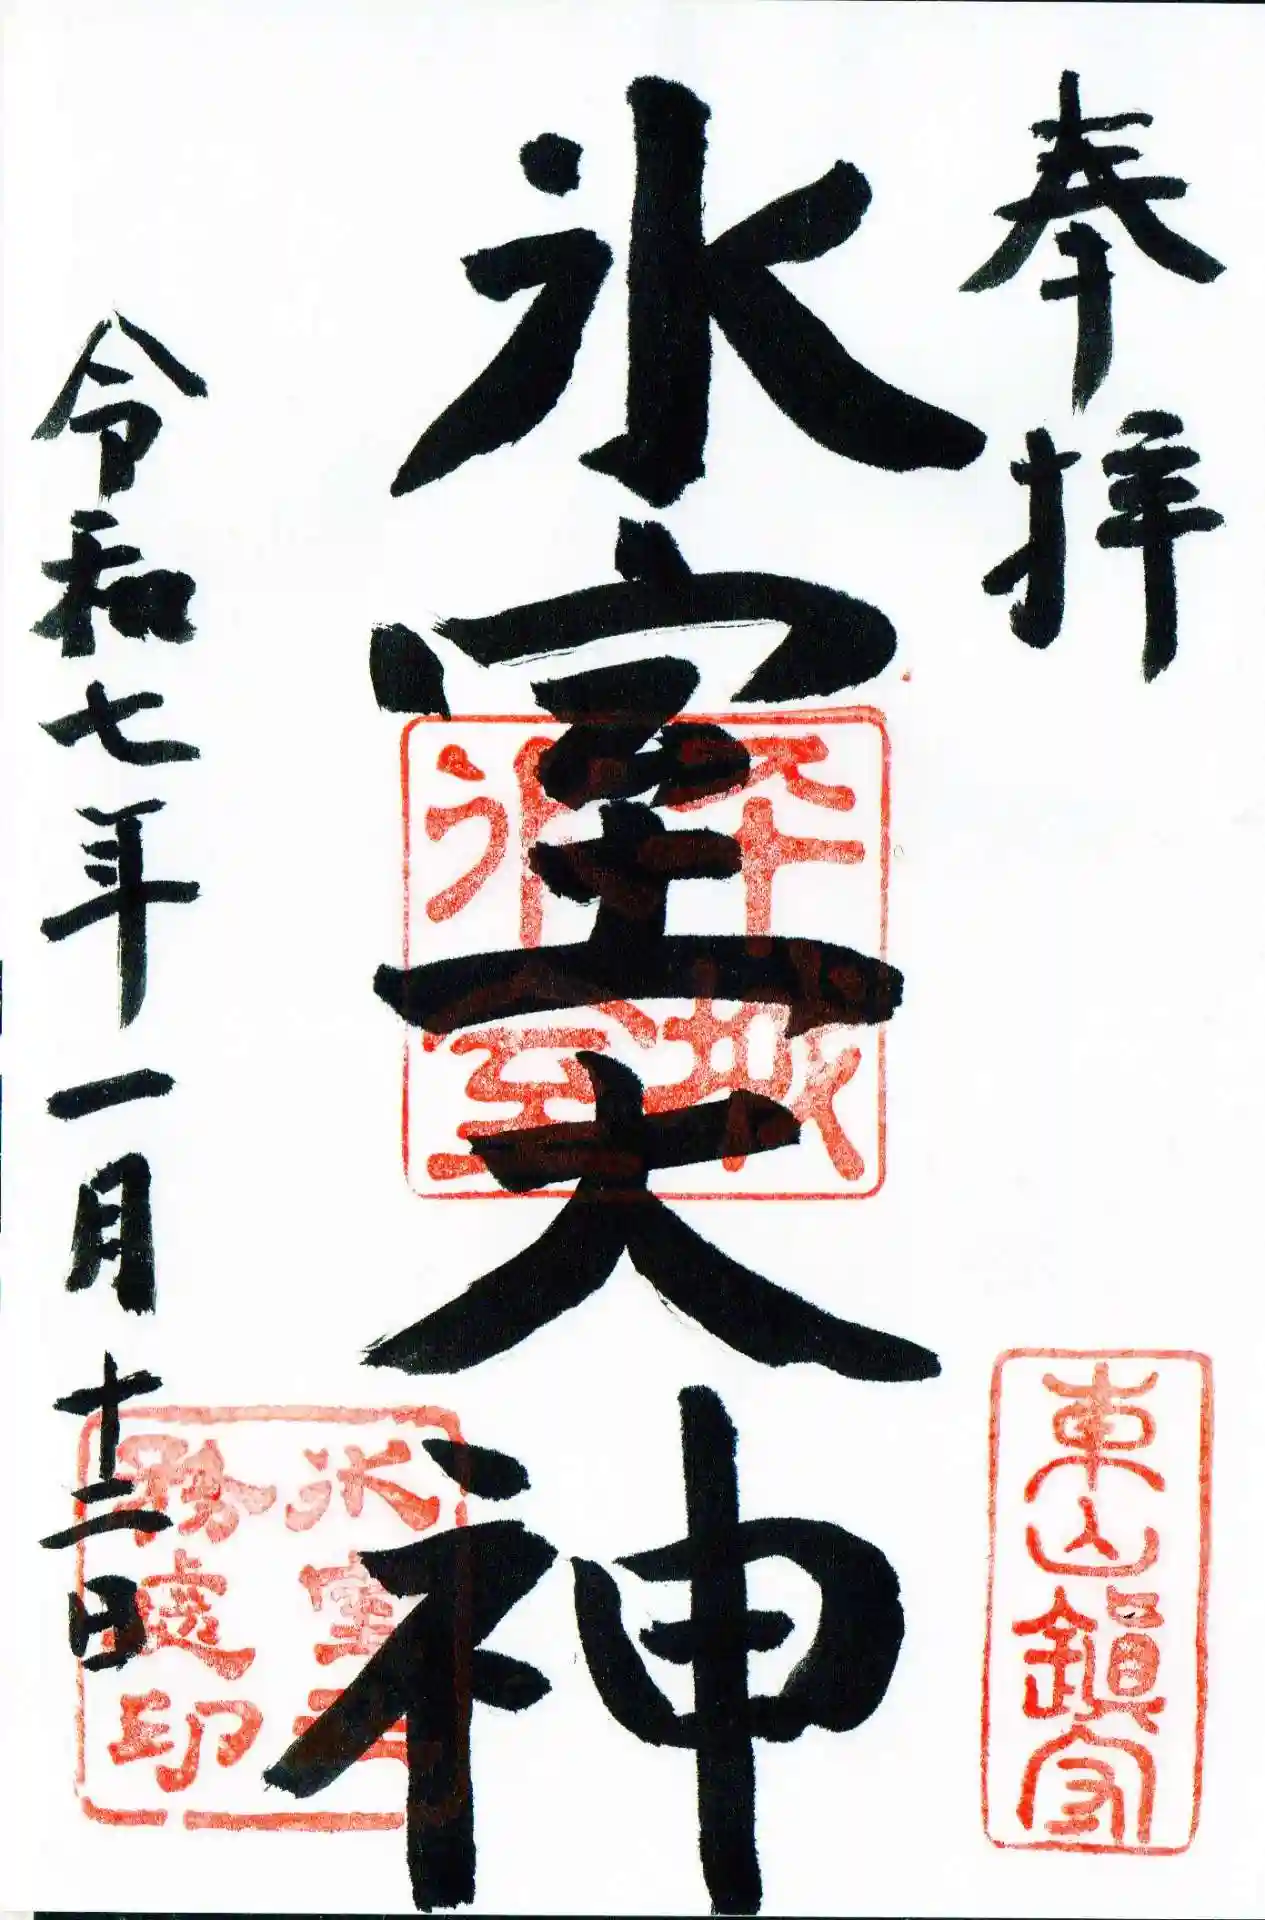 奉拝
東山鎮守
氷室大神
平城
氷室
令和七年一月十二日
氷室
務處印